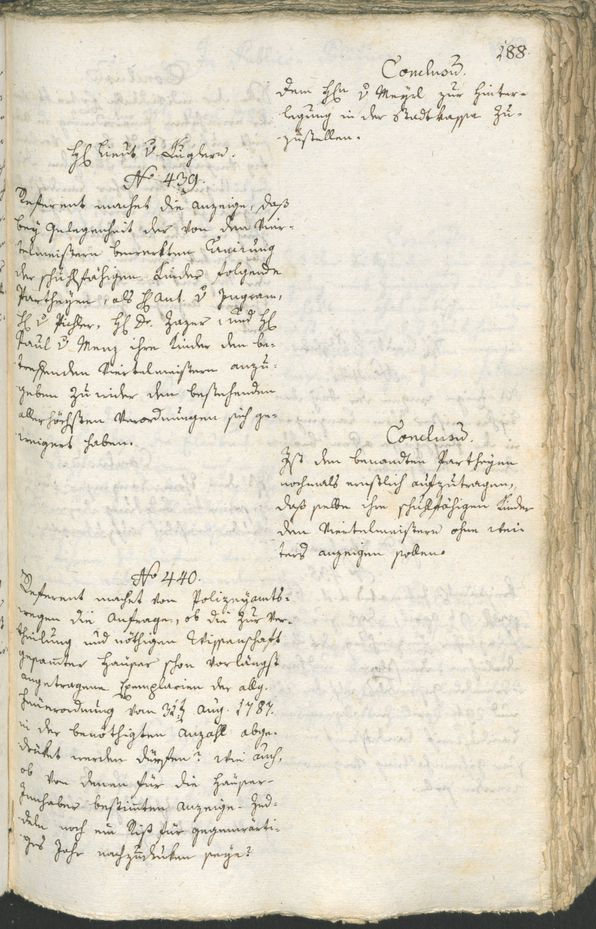 188.
Conclusũ.
Dem Hħn v Meyrl zur Hinter-
legung in der Stadtkassa zu-
zustellen.
Hħ Lieut v Kuglern.
No 439.
Referent machet die Anzeige, daß
bey Gelegenheit der von den Vier-
telmeistern bemerkten
der schuhlfähigen Kinder folgende
Partheyen, als Hħ Ant. v Ingram,
Hħ v Pichler, Hħ Dr. Zazer, und Hħ
Paul v Menz ihre Kinder den be-
treffenden Viertelmeistern anzu-
geben zuwider den bestehenden
allerhöchsten Verordnungen sich ge-
weigert haben.
Conclusũ.
Ist den benandten Partheyen
nochmals ernstlich aufzutragen,
daß selbe ihre schuhlfähigen Kinder
den Viertelmeistern ohne wei-
ters anzeigen sollen.
No 440.
Referent machet von Polizeyamts-
wegen die Anfrage, ob die zur Ver-
theilung und nöthigen Wissenschaft
gesammter Häuser schon vorlängst
angetragene Exemplarien der allg.
Feuerordnung vom 31t Aug. 1787.
in der benöthigten Anzahl abge-
druket werden dürfen? wie auch,
ob von denen für die Häuser-
Innhaber bestimmten Anzeige-Zed-
deln noch ein Riß für gegenwärti-
ges Jahr nachzudruken seye?